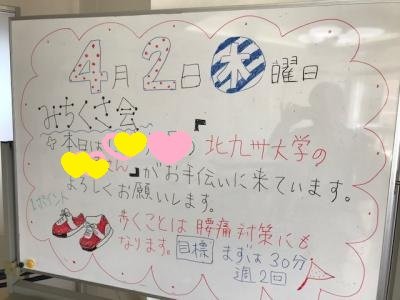 4月2日㊍曜日
みちくさ会
☆本日は 「 ) 北九州大学の
さん」がお手伝いに来ています。
よろしくお願いします。
1ポイント
歩くことは腰痛対策にも
なります。目標 まずは30分
週2回